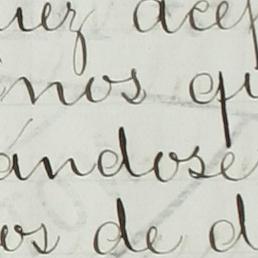 uez acep
inos qu
ándose
os de d